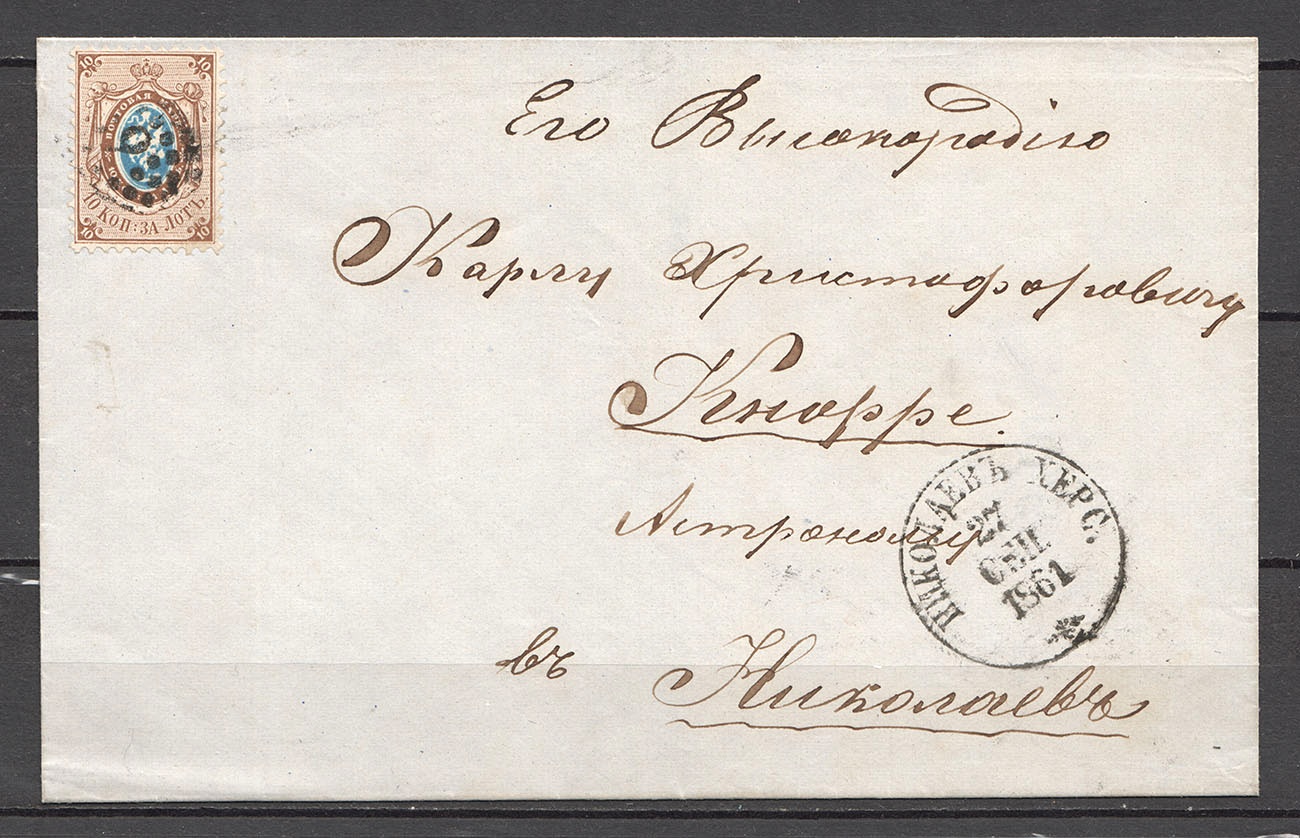 10 10
ПОЧТОВАЯ
10 КОП: ЗА ЛОТЪ.
10 10
Его Высокородію
Карлу Христофоровичу
Кнорре.
Астроному
въ Николаевъ
НИКОЛАЕВЪ ХЕРС.
27
СЕН.
1861